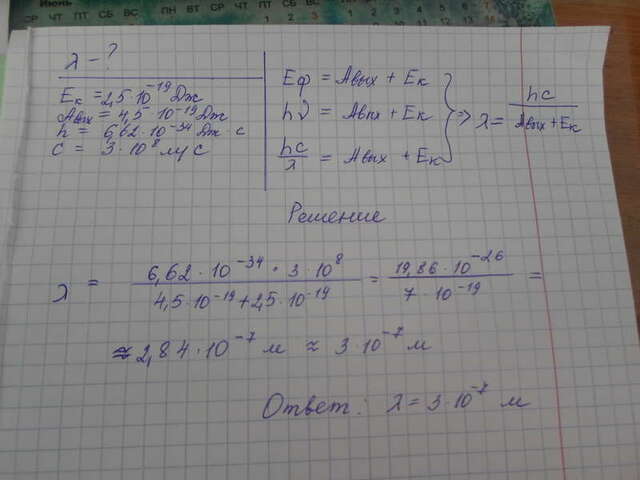 Июнь
СР ЧТ ПТ СБ ВС ПН ВТ СР ЧТ ПТ СБ ВС
λ - ?
Eк = 2,5 · 10⁻¹⁹ Дж
Aвых = 4,5 · 10⁻¹⁹ Дж
h = 6,62 · 10⁻³⁴ Дж · с
c = 3 · 10⁸ м/с
Eф = Aвых + Eк
hν = Aвых + Eк
hc/λ = Aвых + Eк
⇒ λ = hc/(Aвых + Eк)
Решение
λ = (6,62 · 10⁻³⁴ · 3 · 10⁸)/(4,5 · 10⁻¹⁹ + 2,5 · 10⁻¹⁹) = (19,86 · 10⁻²⁶)/(7 · 10⁻¹⁹) =
≈ 2,84 · 10⁻⁷ м ≈ 3 · 10⁻⁷ м
Ответ: λ = 3 · 10⁻⁷ м